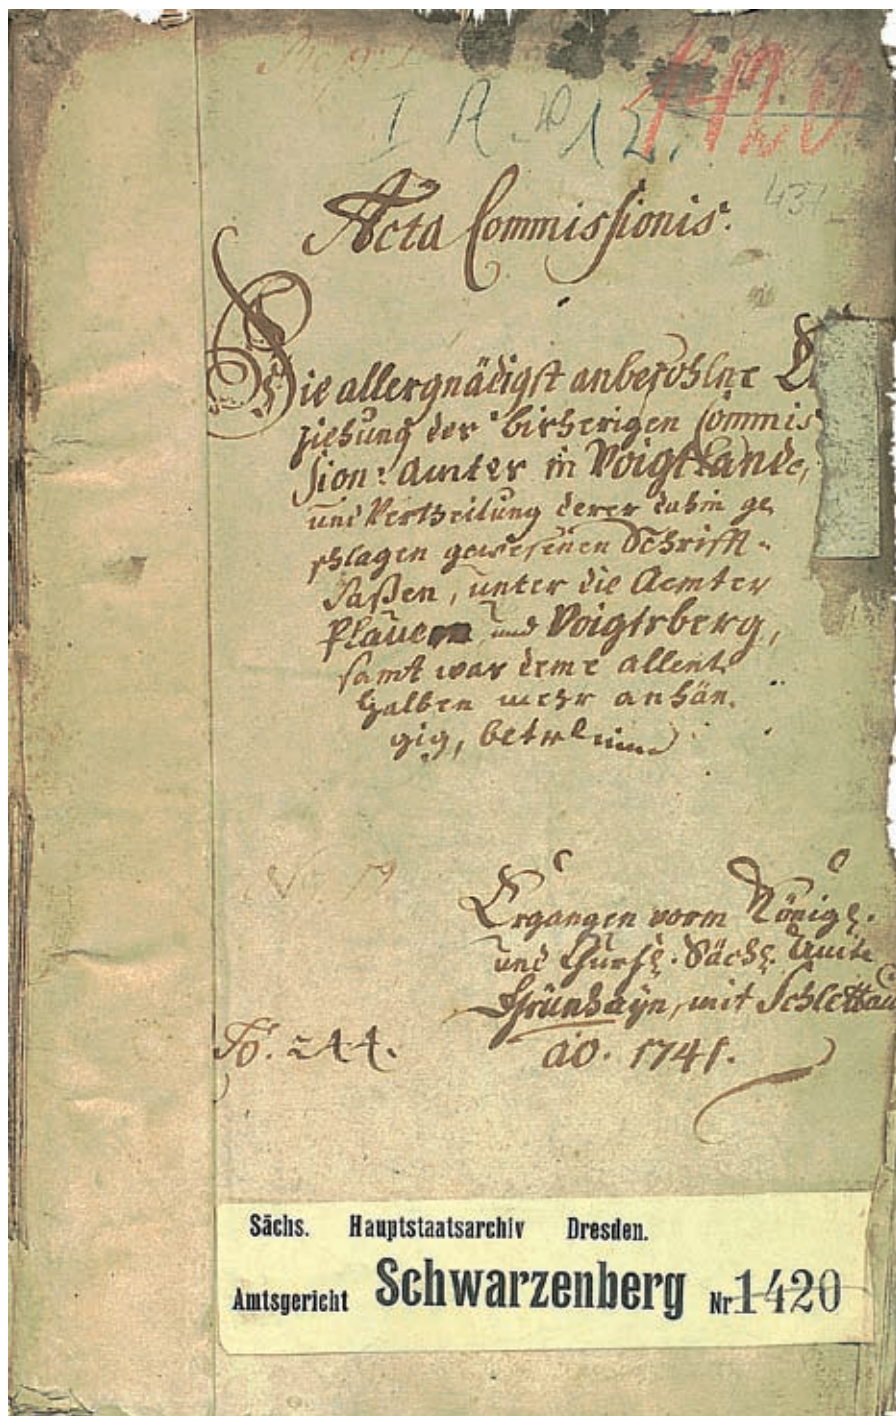 I A. No 12.
1420
437
Acta Commissionis.
Die allergnädigst anbefohlne
ziehung der bisherigen Commis
sion: Amter in Voigtlande,
und Vertheilung derer dahin ge
schlagen gewesenen Schrifft-
saßen, unter die Aemter
Plauen und Voigtsberg,
samt was deme allent
halben mehr anhän,
gig, betreffend
Ergangen vorm Königl.
und Churfl. Sächs. Amte
Grünhayn, mit Schlettau
ao. 1741.
Fo. 244.
Sächs. Hauptstaatsarchiv Dresden.
Amtsgericht Schwarzenberg Nr 1420